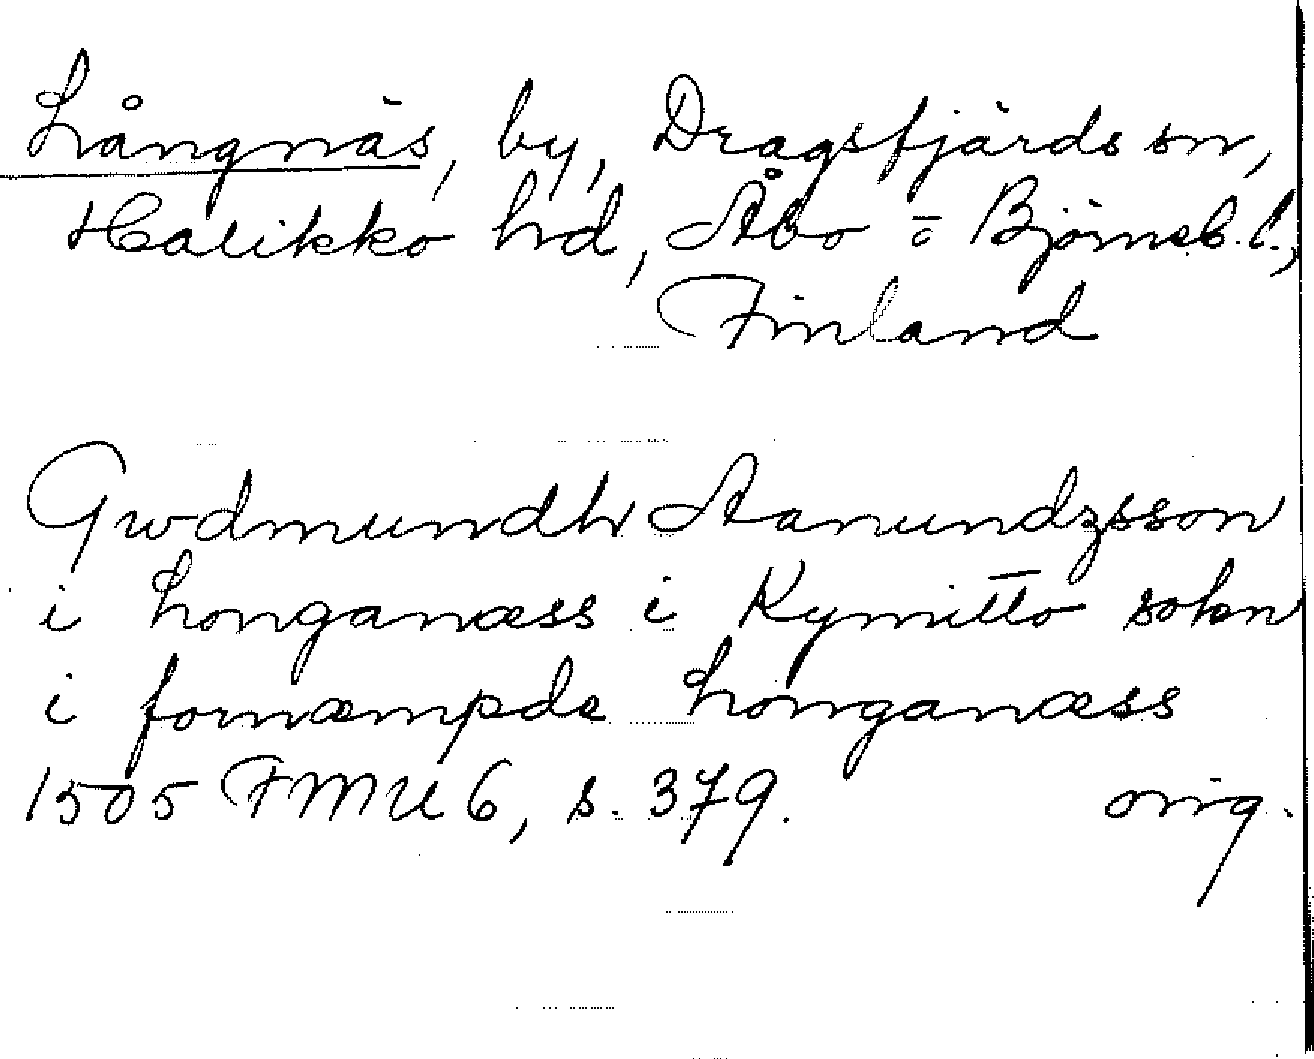 Långnäs, by, Dragsfjärds sn,
Halikko hd, Åbo o Björneb. l.,
Finland
Gwdmundh Aanundzsson
i Longanæss i Kymitto sokn
i fornæmpde Longanæss
1505 FMU 6, s. 379. orig.